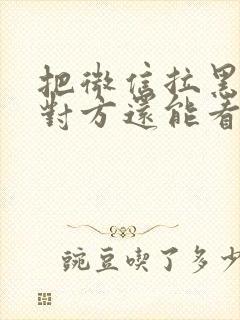 把微信拉黑
對方還能看
豌豆喫了多少